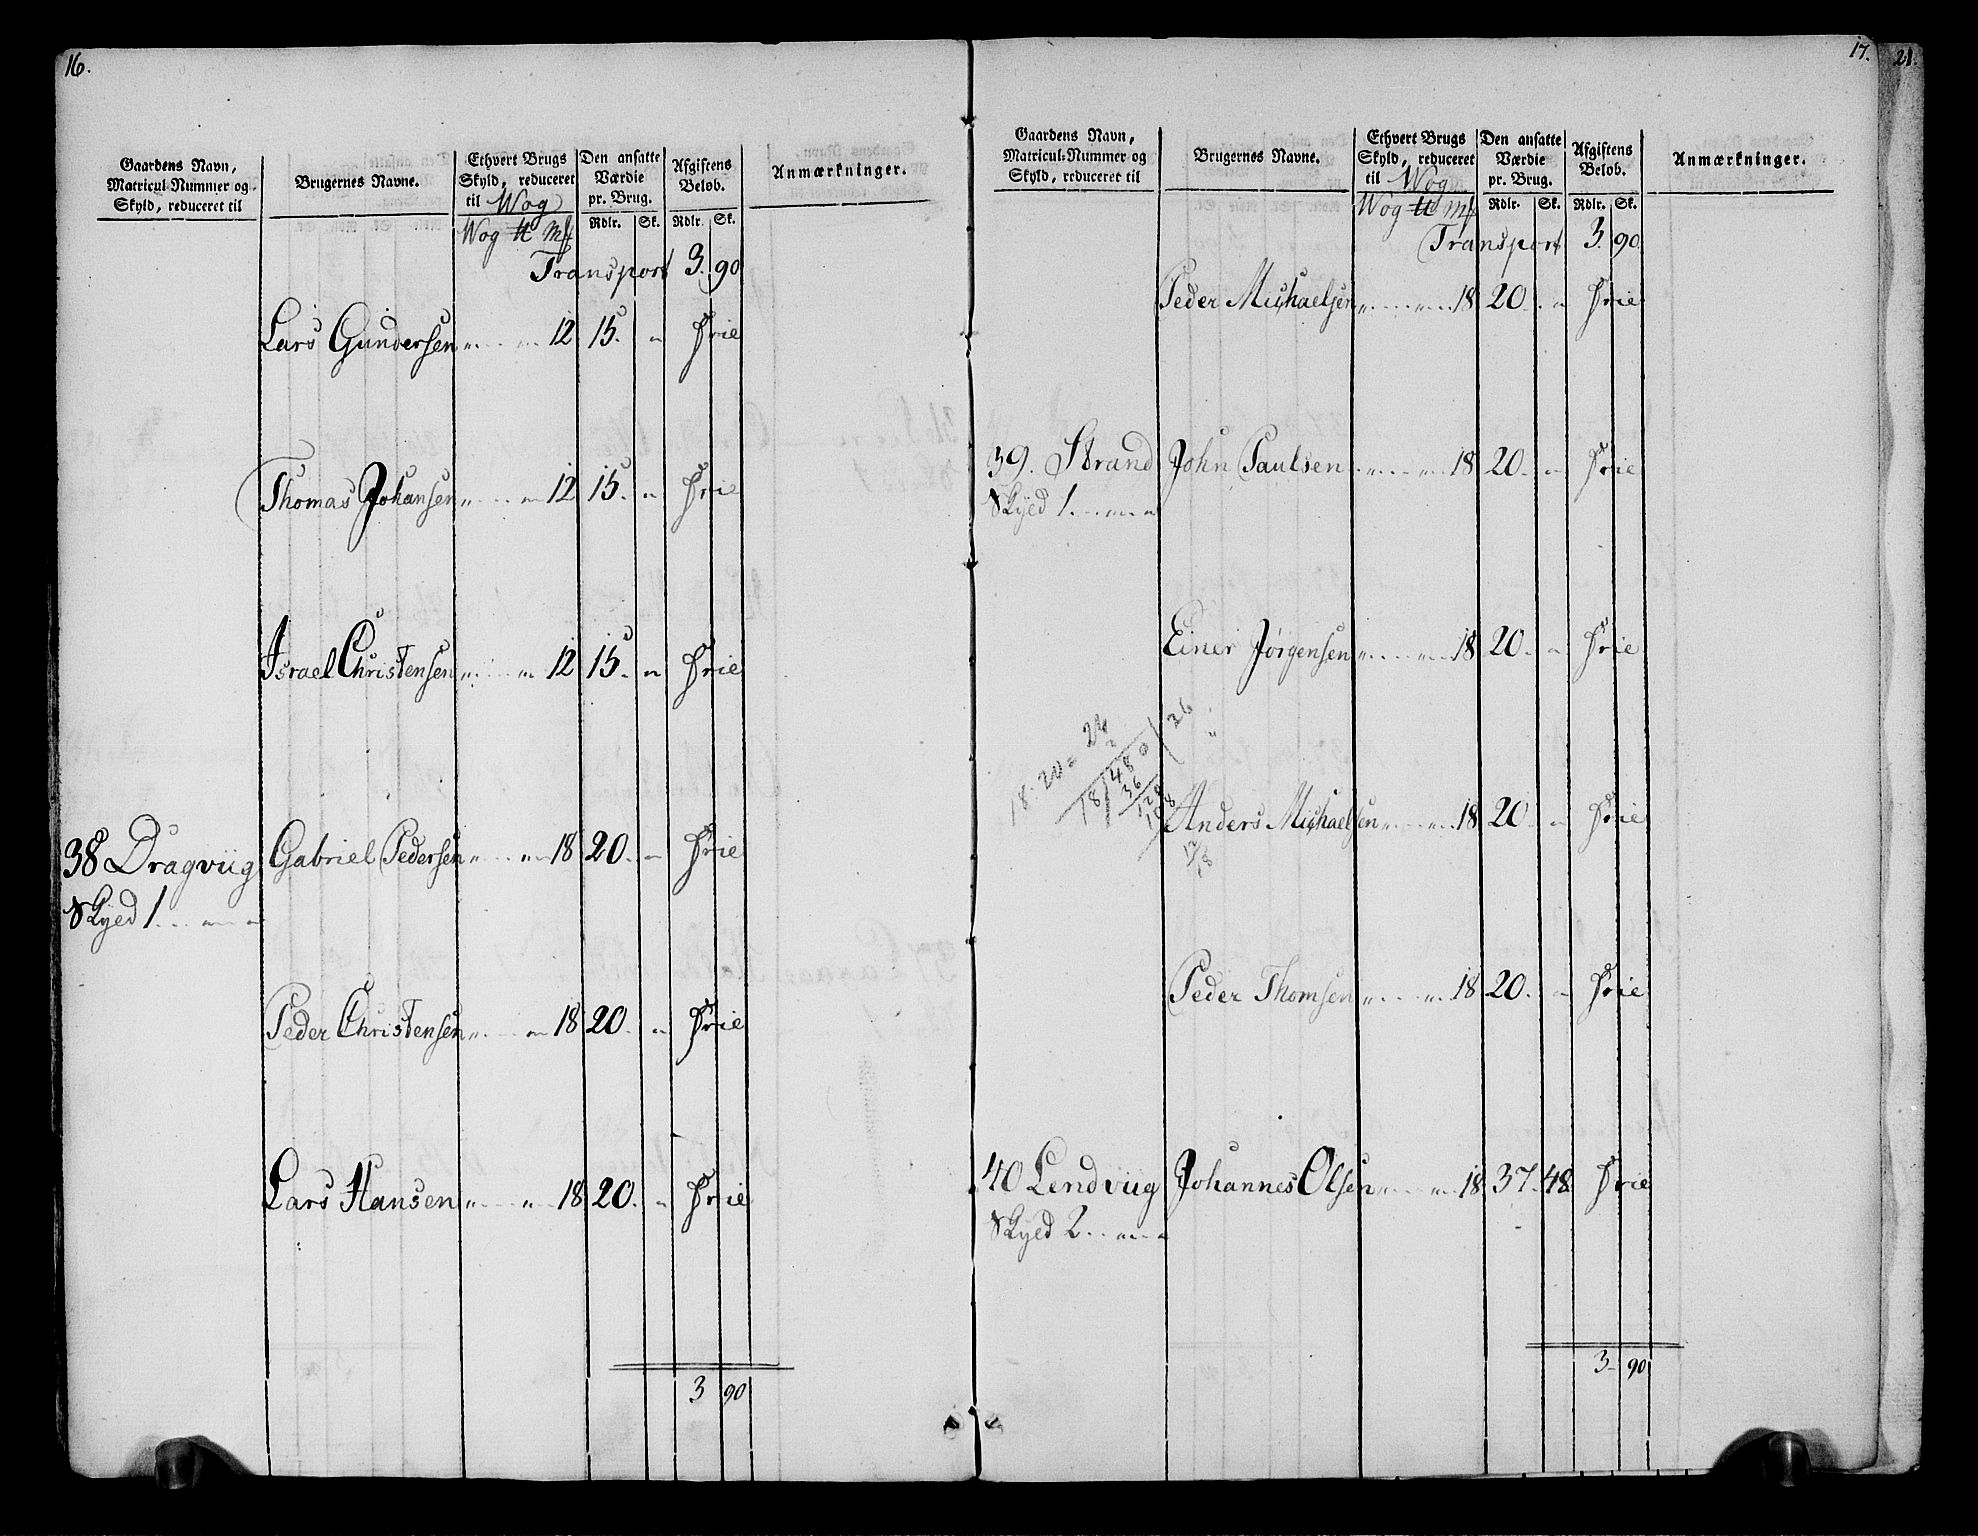 16.
Gaardens Navn, Matricul-Nummer og Skyld, reduceret til | Brugernes Navne. | Ethvert Brugs Skyld, reduceret til Wog | Den ansatte Værdie pr. Brug. | Afgiftens Beløb. | Anmærkninger.
Wog ℔ Mk | Rdlr. | Sk. | Rdlr. | Sk.
Transport 3. 90
Lars Gundersen " " 12 15. " Frie
Thomas Johansen " " 12 15. " Frie
Israel Christensen " " 12 15. " Frie
38 Dragviig Gabriel Pedersen " " 18 20. " Frie
Skyed 1 " "
Peder Christensen " " 18 20. " Frie
Lars Hansen " " 18 20. " Frie
3 90
17.
21.
Gaardens Navn, Matricul-Nummer og Skyld, reduceret til | Brugernes Navne. | Ethvert Brugs Skyld, reduceret til Wog | Den ansatte Værdie pr. Brug. | Afgiftens Beløb. | Anmærkninger.
Wog ℔ Mk | Rdlr. | Sk. | Rdlr. | Sk.
Transport 3. 90
Peder Michaelsen " " 18 20. " Frie
39. Strand John Paulsen " " 18 20. " Frie
Skyed 1 " "
Einer Jørgensen " " 18 20. " Frie
18. 20 = 24
18/480/26
36
120
108
12/18
Anders Michaelsen " " 18 20. " Frie
Peder Thomsen " " 18 20. " Frie
40 Lendviig Johannes Olsen " " 18 37. 48. Frie
Skyed 2 " "
3 90